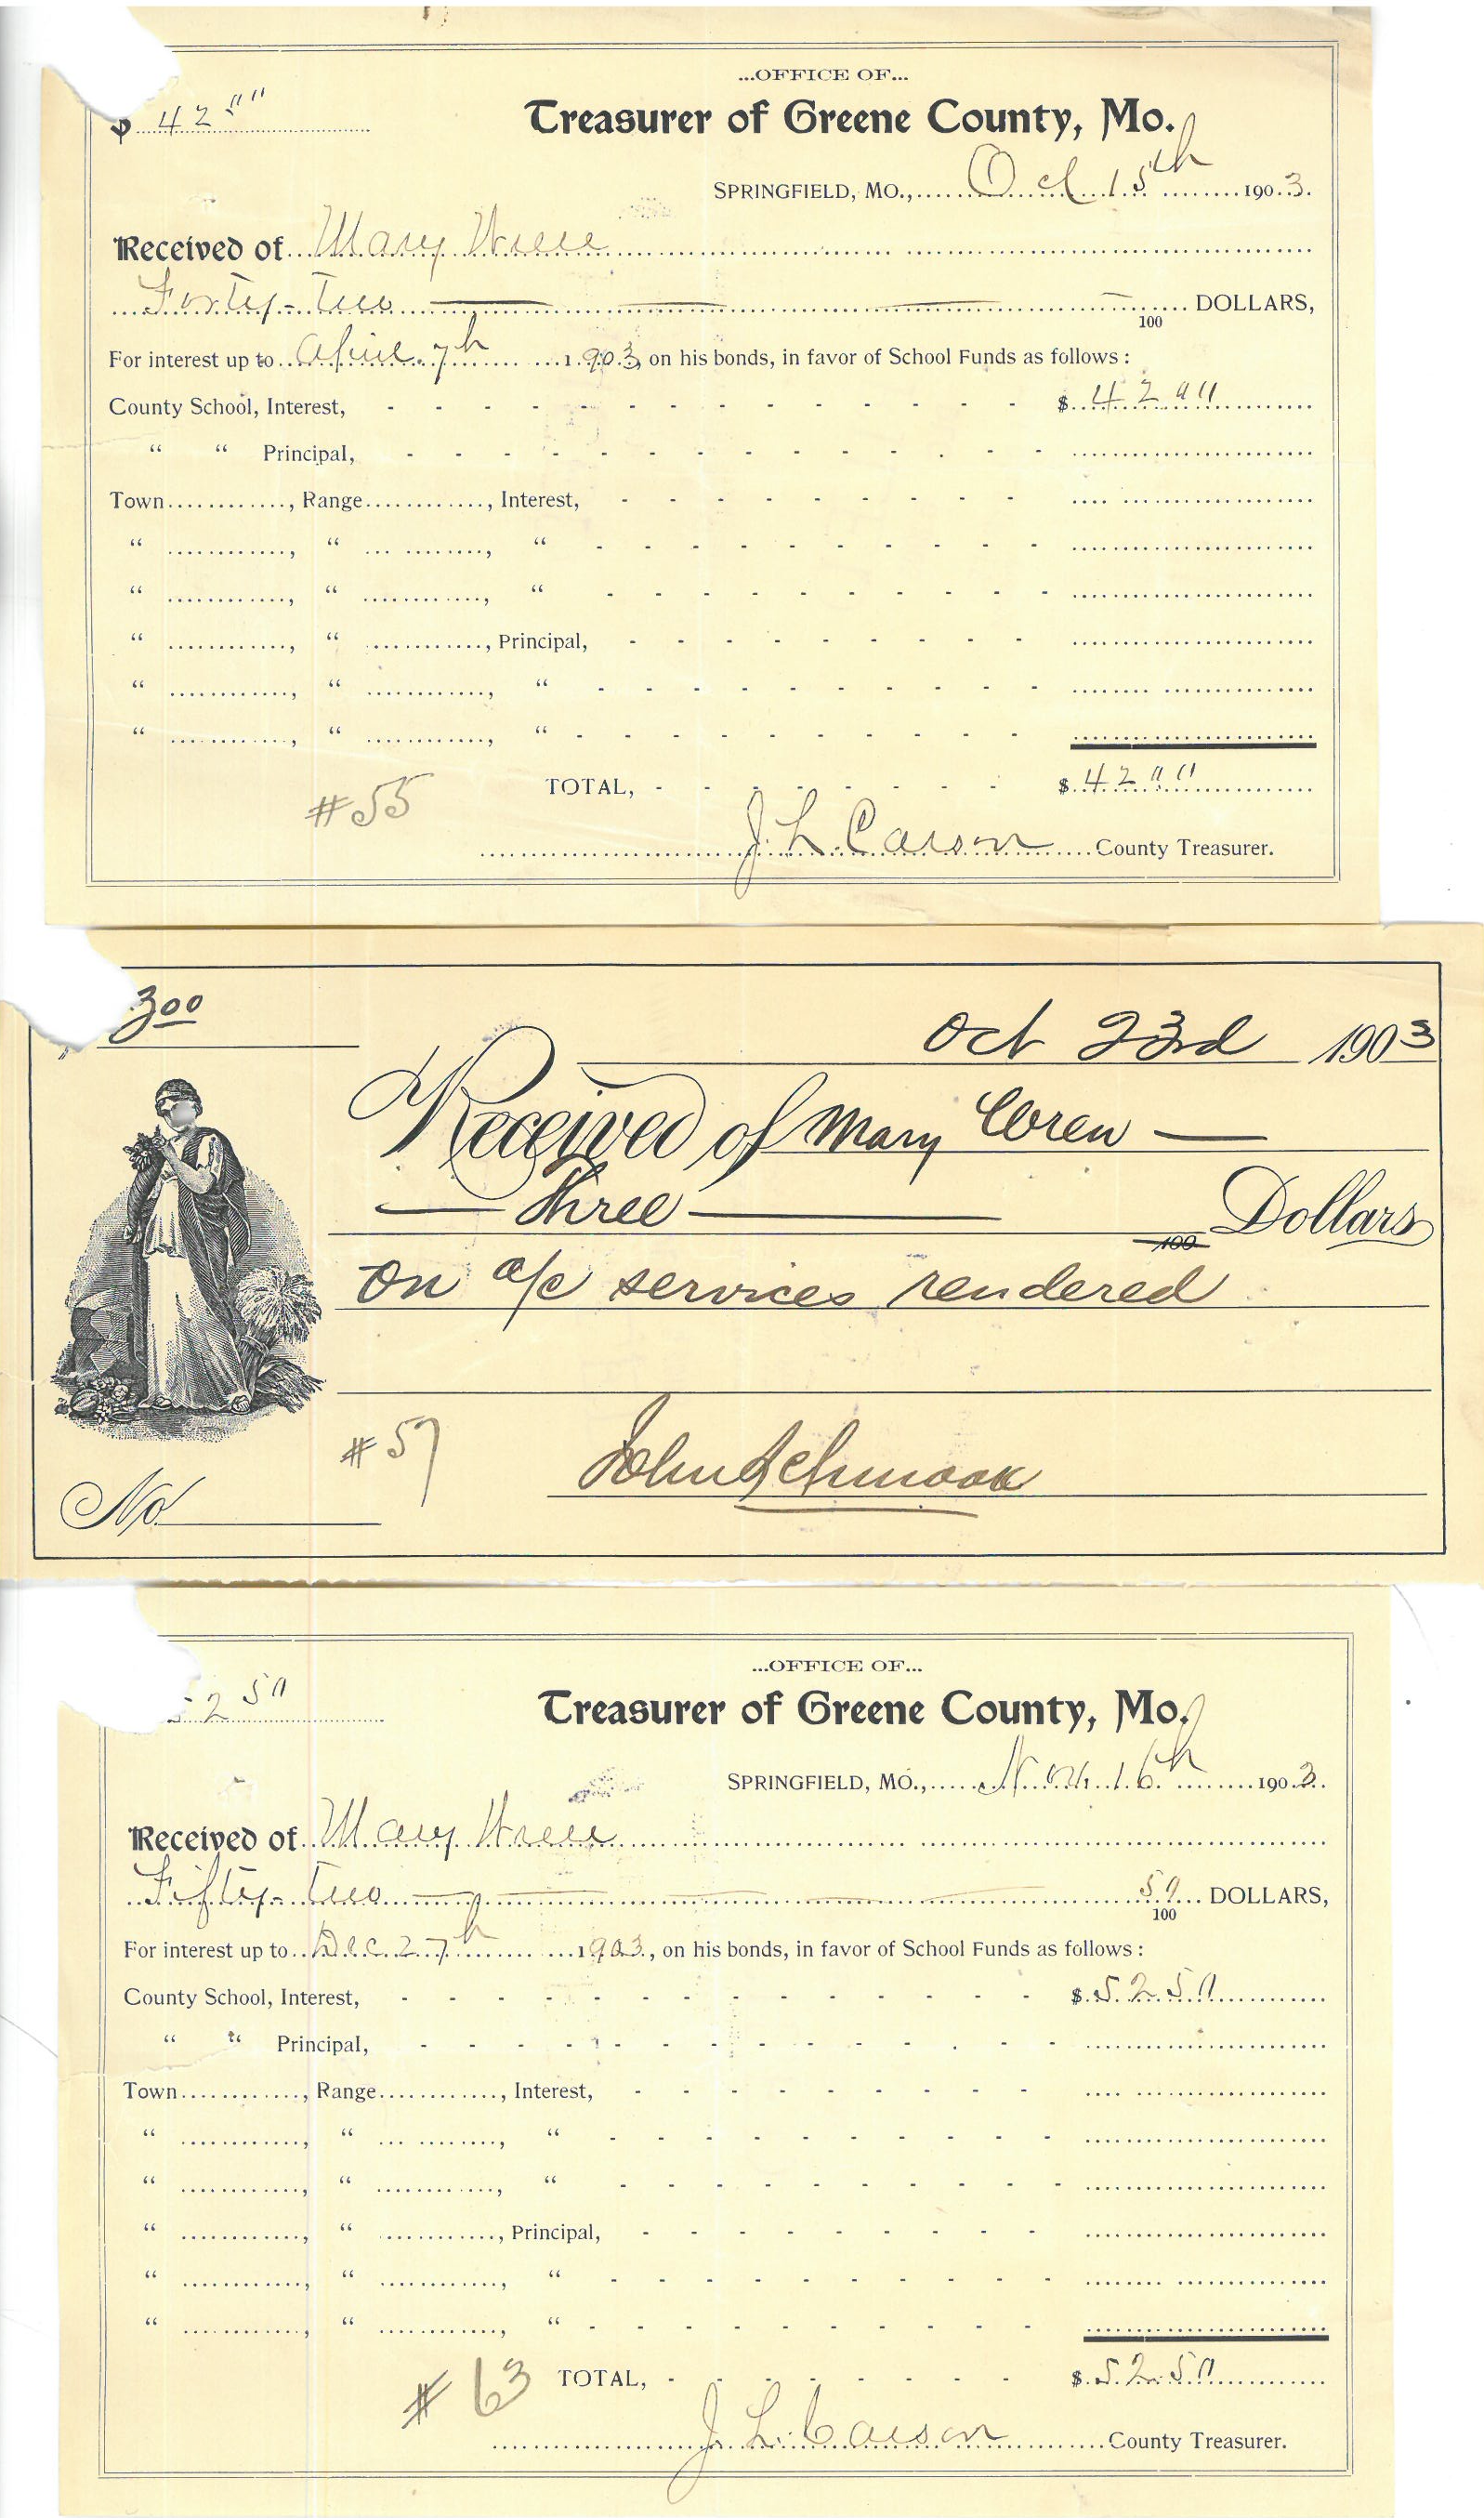 ...OFFICE OF...
$ 42 00
Treasurer of Greene County, Mo.
SPRINGFIELD, MO., Oct 15th 1903.
Received of Mary Wren
Forty-Two DOLLARS,
100
For interest up to April 7th 1903, on his bonds, in favor of School Funds as follows:
County School, Interest, $ 42 00
“ “ Principal,
Town, Range, Interest,
“ , “ , “
“ , “ , “
“ , “ , Principal,
“ , “ , “
“ , “ , “
TOTAL, $ 42 00
#55
J. L. Carson County Treasurer.
3 00
Oct 23rd 1903
Received of Mary Wren
Three Dollars
100
on a/c services rendered
#57
John Schmook
No.
...OFFICE OF...
52 50
Treasurer of Greene County, Mo.
SPRINGFIELD, MO., Nov. 16th 1903.
Received of Mary Wren
Fifty-Two 50 DOLLARS,
100
For interest up to Dec 27th 1903, on his bonds, in favor of School Funds as follows:
County School, Interest, $ 52 50
“ “ Principal,
Town, Range, Interest,
“ , “ , “
“ , “ , “
“ , “ , Principal,
“ , “ , “
“ , “ , “
TOTAL, $ 52 50
#63
J. L. Carson County Treasurer.